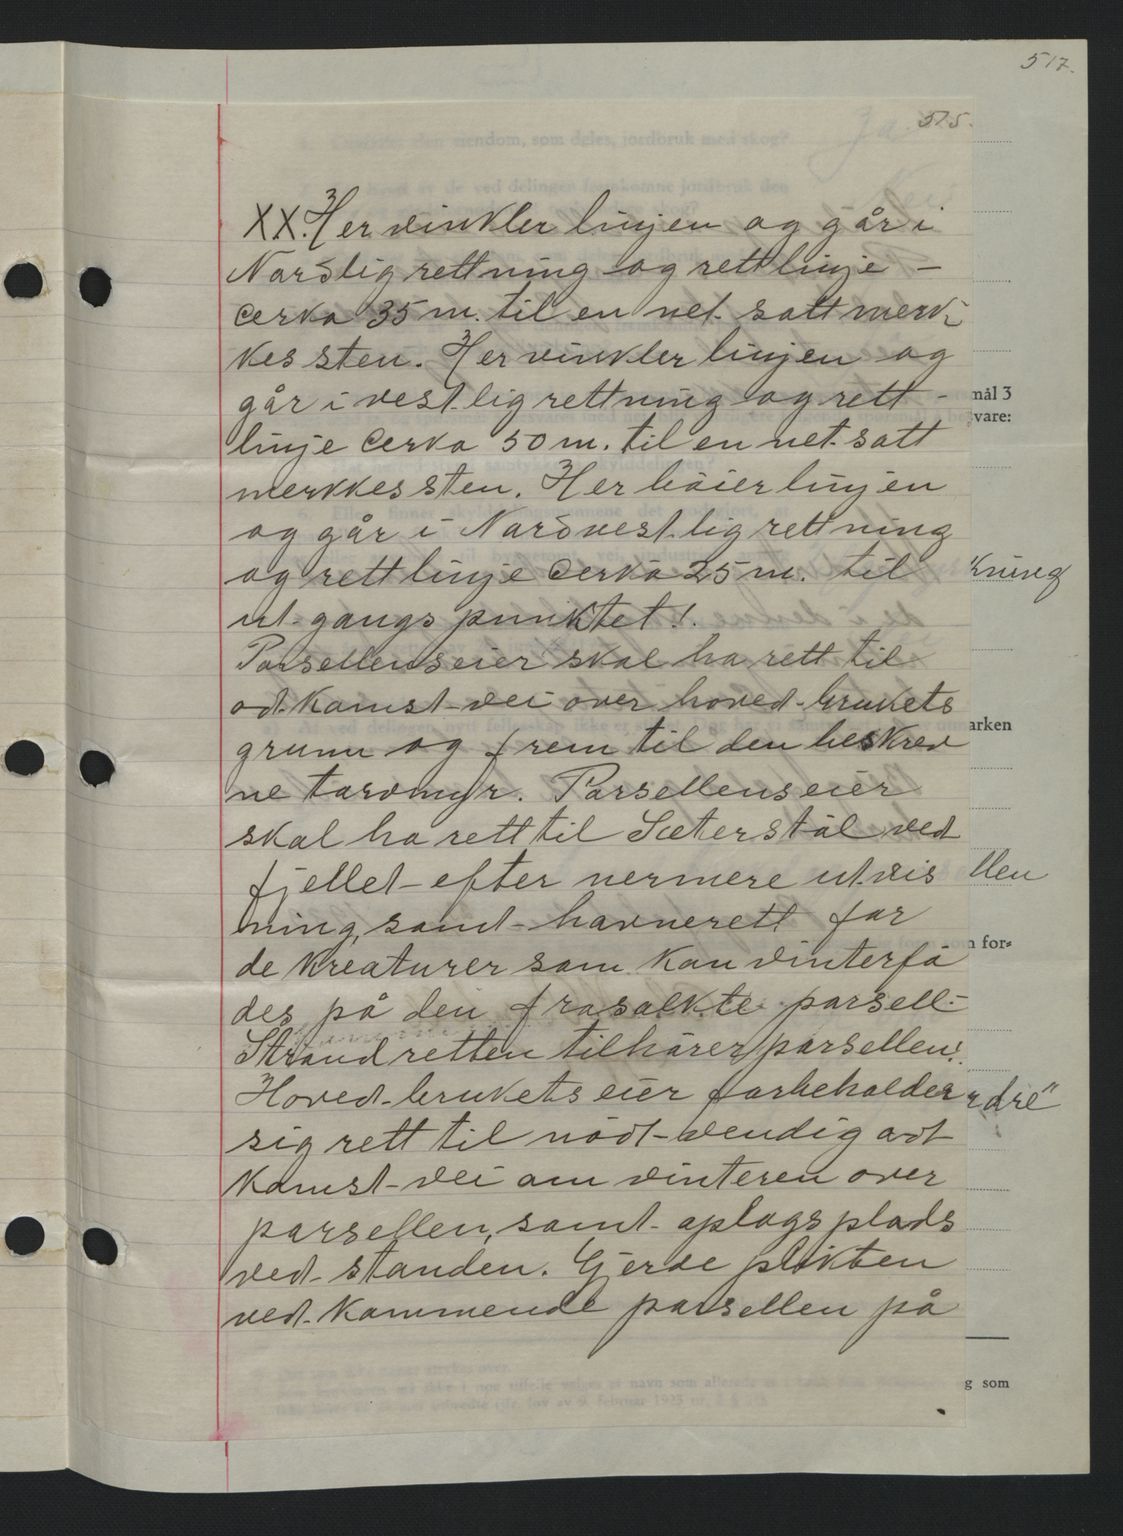 517.
515.
XX. Her vinkler linjen og går i
Nordlig rettning og rettlinje -
cerka 35 m. til en net satt merk-
kes sten. Her vinkler linjen og
går i vest-lig rettning og rett -
linje cerka 50 m. til en net-satt
merkkes sten. Her böier linjen
og går i Nordvest-lig rettning
og rett linje cerka 25 m. til
ut-gangs punktet!.
Parsellens eier skal ha rett til
ad-komst-vei over hoved-brukets
grunn og frem til den beskrev
ne torvmyr. Parsellens eier
skal ha rett til Sæterstål ved
fjellet-efter nermere ut-vis
ning, samt-havnerett for
de kreaturer som kan vinterfö
des på den frasolkte parsell-
Strandretten tilhörer parsellen!.
Hoved-brukets eier forbeholder
sig rett til nödt-vendig ad-
komst-vei om vinteren over
parsellen, samt-oplagsplads
ved-standen. Gjerde plikten
ved-kommende parsellen på
mål 3
vare:
kning
arken
llen
n for=
rdre"
g som